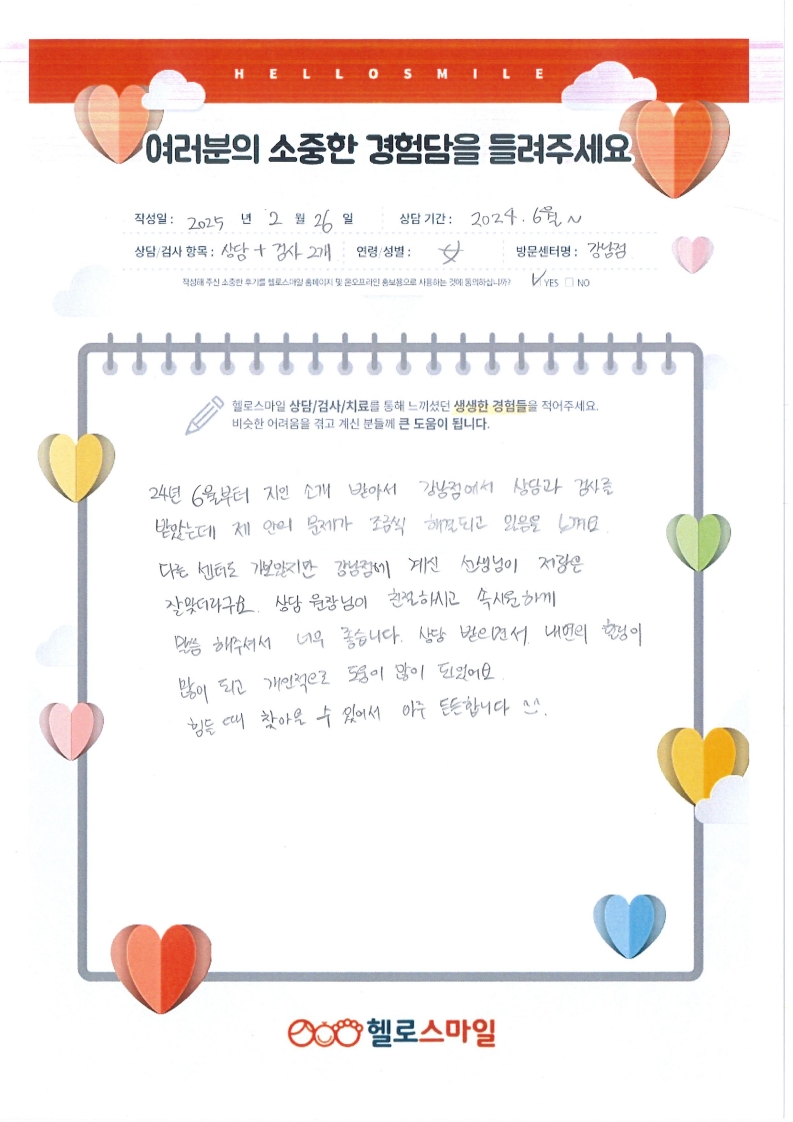 HELLOSMILE
여러분의 소중한 경험담을 들려주세요
작성일 : 2025 년 2 월 26 일 상담 기간 : 2024. 6월 ~
상담/검사 항목 : 상담 + 검사 2개 연령/성별 : 女 방문센터명 : 강남점
작성해 주신 소중한 후기를 헬로스마일 홈페이지 및 온오프라인 홍보용으로 사용하는 것에 동의하십니까? ✓ YES □ NO
헬로스마일 상담/검사/치료를 통해 느끼셨던 생생한 경험들을 적어주세요.
비슷한 어려움을 겪고 계신 분들께 큰 도움이 됩니다.
24년 6월부터 지인 소개 받아서 강남점에서 상담과 검사를
받았는데 제 안의 문제가 조금씩 해결되고 있음을 느껴요.
다른 센터도 가보았지만 강남점에 계신 선생님이 저랑은
잘맞더라구요. 상담 원장님이 친절하시고 속시원하게
말씀 해주셔서 너무 좋습니다. 상담 받으면서 내면의 힐링이
많이 되고 개인적으로 도움이 많이 되었어요.
힘들 때 찾아올 수 있어서 아주 든든합니다 ^^.
헬로스마일